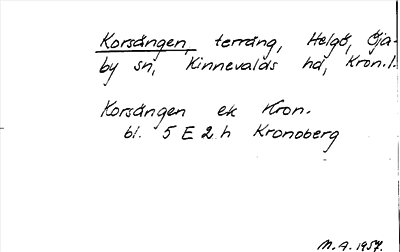 Korsängen, terräng, Helgö, Öja-
by sn, Kinnevalds hd, Kron. l.
Korsängen ek Kron.
bl. 5 E 2 h Kronoberg
M.A. 1957.